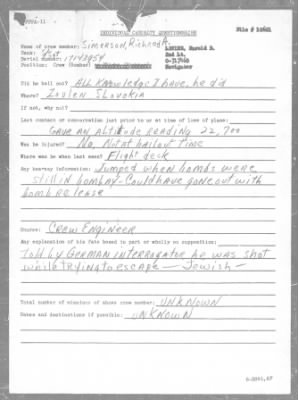 File # 10601
INDIVIDUAL CASUALTY QUESTIONNAIRE
Name of crew member: Simerson, Richard A.
Harold D.
Rank: S/Sgt
2nd Lt.
Serial number: 17143954
O-717460
Position: Crew (Bomber)
Navigator
Did he bail out? ALL Knowledge I have, he did
Where? Zvolen Slovakia
If not, why not?
Last contact or conversation just prior to or at time of loss of plane:
GAVE AN ALTITUDE READING 22,700
Was he injured? No, Not at bailout time
Where was he when last seen? Flight deck
Any hearsay information: Jumped when bombs were
still in bombay - Could have gone out with
bomb release
Source: Crew Engineer
Any explanation of his fate based in part or wholly on supposition:
told by GERMAN interrogator he was shot
while trying to escape - Jewish -
Total number of missions of above crew member: UNKNOWN
Dates and destinations if possible: UNKNOWN